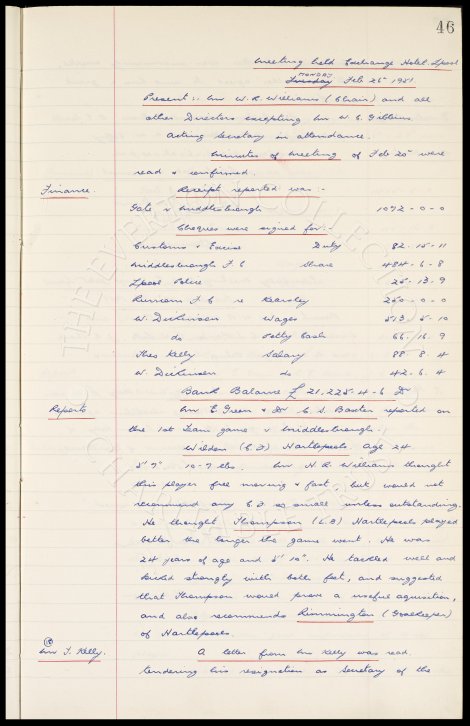 46
Meeting held Exchange Hotel Lpool
MONDAY
Tuesday Feb 26th 1951.
Present:- Mr W. R. Williams (Chair) and all
other Directors excepting Mr W. C. Gibbins.
Acting Secretary in attendance.
Minutes of Meeting of Feb 20th were
read & confirmed.
Finance. Receipt reported was:-
Gate v Middlesbrough 1092-0-0
Cheques were signed for:-
Customs & Excise Duty 82-15-11
Middlesbrough F.C Share 484-6-8
Lpool Police 25-13-9
Runcorn F.C re Kearsley 250-0-0
W. Dickinson Wages 513-5-10
do Petty Cash 66-16-9
Theo Kelly Salary 88-8-4
W. Dickinson do 42-6-4
Bank Balance £21,225-4-6 Dr
Reports Mr E. Green & Dr C. S. Baxter reported on
the 1st Team game v Middlesbrough.
Wildon (C.F) Hartlepools age 24
5'9" 10-7 lbs. Mr H. R. Williams thought
this player free moving & fast, but would not
recommend any C.F so small unless outstanding.
He thought Thompson (L.B) Hartlepools played
better the longer the game went. He was
24 years of age and 5'10". He tackled well and
kicked strongly with both feet, and suggested
that Thompson would prove a useful aquisition,
and also recommends Rimmington (Goalkeeper)
of Hartlepools.
Mr T. Kelly. A letter from Mr Kelly was read.
tendering his resignation as Secretary of the
THE EVERTON COLLECTION